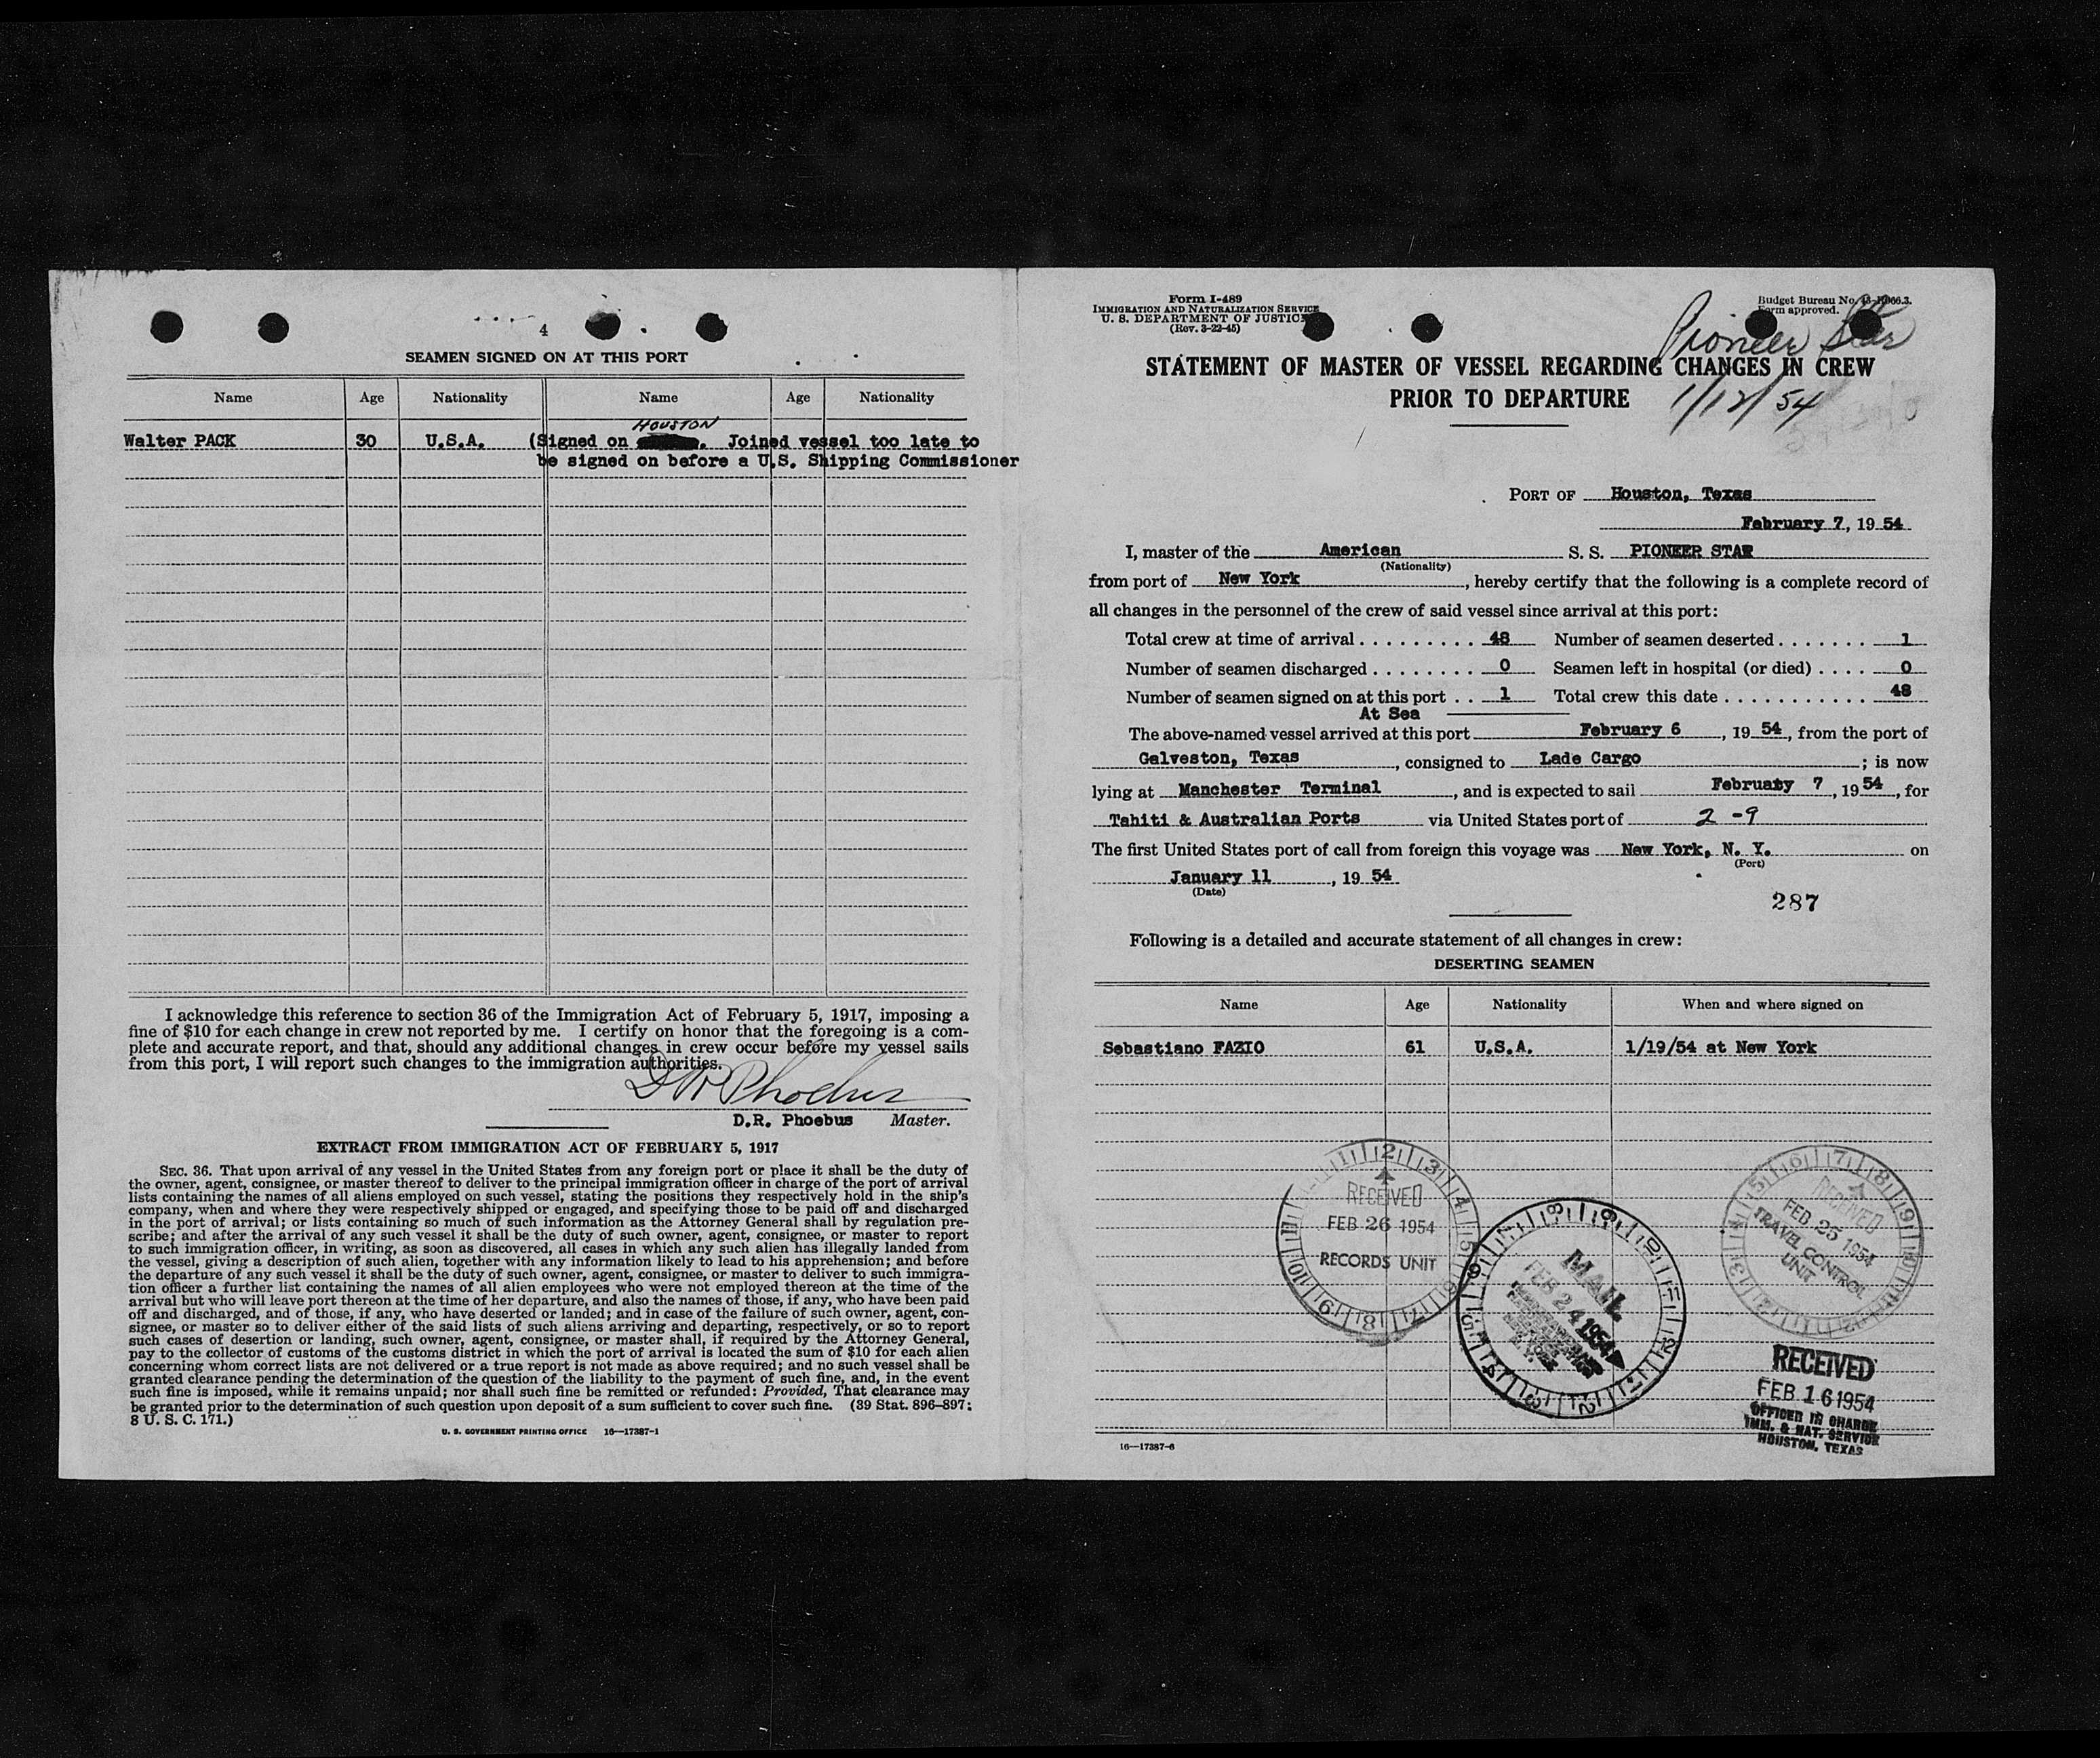 4
SEAMEN SIGNED ON AT THIS PORT
Name Age Nationality Name Age Nationality
HOUSTON
Walter PACK 30 U.S.A. (Signed on . Joined vessel too late to
be signed on before a U.S. Shipping Commissioner
I acknowledge this reference to section 36 of the Immigration Act of February 5, 1917, imposing a
fine of $10 for each change in crew not reported by me. I certify on honor that the foregoing is a com-
plete and accurate report, and that, should any additional changes in crew occur before my vessel sails
from this port, I will report such changes to the immigration authorities.
D R Phoebus
D.R. Phoebus Master.
EXTRACT FROM IMMIGRATION ACT OF FEBRUARY 5, 1917
SEC. 36. That upon arrival of any vessel in the United States from any foreign port or place it shall be the duty of
the owner, agent, consignee, or master thereof to deliver to the principal immigration officer in charge of the port of arrival
lists containing the names of all aliens employed on such vessel, stating the positions they respectively hold in the ship's
company, when and where they were respectively shipped or engaged, and specifying those to be paid off and discharged
in the port of arrival; or lists containing so much of such information as the Attorney General shall by regulation pre-
scribe; and after the arrival of any such vessel it shall be the duty of such owner, agent, consignee, or master to report
to such immigration officer, in writing, as soon as discovered, all cases in which any such alien has illegally landed from
the vessel, giving a description of such alien, together with any information likely to lead to his apprehension; and before
the departure of any such vessel it shall be the duty of such owner, agent, consignee, or master to deliver to such immigra-
tion officer a further list containing the names of all alien employees who were not employed thereon at the time of the
arrival but who will leave port thereon at the time of her departure, and also the names of those, if any, who have been paid
off and discharged, and of those, if any, who have deserted or landed; and in case of the failure of such owner, agent, con-
signee, or master so to deliver either of the said lists of such aliens arriving and departing, respectively, or so to report
such cases of desertion or landing, such owner, agent, consignee, or master shall, if required by the Attorney General,
pay to the collector of customs of the customs district in which the port of arrival is located the sum of $10 for each alien
concerning whom correct lists are not delivered or a true report is not made as above required; and no such vessel shall be
granted clearance pending the determination of the question of the liability to the payment of such fine, and, in the event
such fine is imposed, while it remains unpaid; nor shall such fine be remitted or refunded: Provided, That clearance may
be granted prior to the determination of such question upon deposit of a sum sufficient to cover such fine. (39 Stat. 896–897;
8 U. S. C. 171.)
U. S. GOVERNMENT PRINTING OFFICE 16—17387-1
Form I-489
IMMIGRATION AND NATURALIZATION SERVICE
U. S. DEPARTMENT OF JUSTICE
(Rev. 3-22-45)
Budget Bureau No.
Form approved.
Pioneer Star
STATEMENT OF MASTER OF VESSEL REGARDING CHANGES IN CREW
PRIOR TO DEPARTURE
1/12/54
PORT OF Houston, Texas
February 7, 19 54
I, master of the American S. S. PIONEER STAR
(Nationality)
from port of New York, hereby certify that the following is a complete record of
all changes in the personnel of the crew of said vessel since arrival at this port:
Total crew at time of arrival . . . . . . . . . . 48 Number of seamen deserted . . . . . . . 1
Number of seamen discharged . . . . . . . . 0 Seamen left in hospital (or died) . . . . 0
Number of seamen signed on at this port . . 1 Total crew this date . . . . . . . . . . . 48
At Sea
The above-named vessel arrived at this port February 6, 19 54, from the port of
Galveston, Texas, consigned to Lade Cargo; is now
lying at Manchester Terminal, and is expected to sail February 7, 19 54, for
Tahiti & Australian Ports via United States port of 2-9
The first United States port of call from foreign this voyage was New York, N. Y. on
(Port)
January 11, 19 54
(Date)
287
Following is a detailed and accurate statement of all changes in crew:
DESERTING SEAMEN
Name Age Nationality When and where signed on
Sebastiano FAZIO 61 U.S.A. 1/19/54 at New York
RECEIVED
FEB 26 1954
RECORDS UNIT
MAIL
FEB 24 1954
RECEIVED
FEB 25 1954
TRAVEL CONTROL
UNIT
RECEIVED
FEB 16 1954
OFFICER IN CHARGE
IMM. & NAT. SERVICE
HOUSTON, TEXAS
16—17387-6